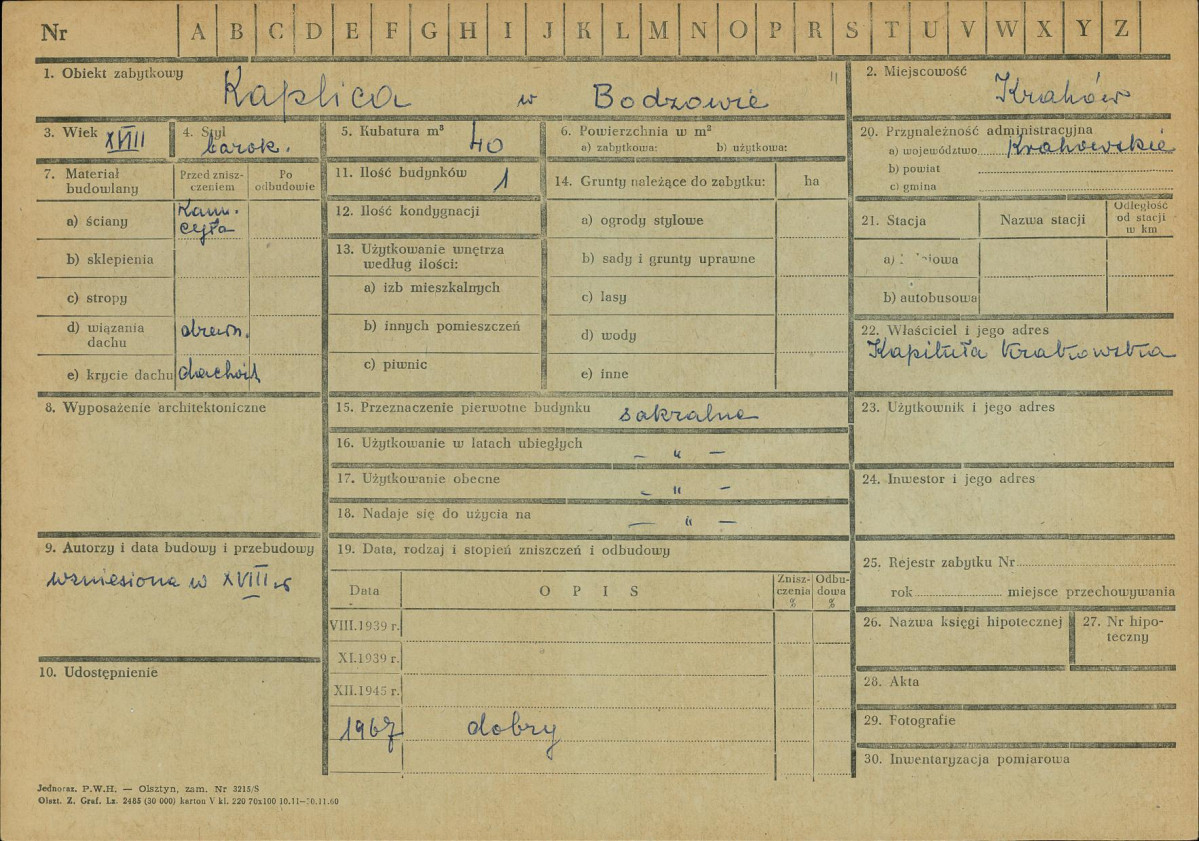 Nr A B C D E F G H I J K L M N O P R S T U V W X Y Z
1. Obiekt zabytkowy
Kaplica w Bodzowie
2. Miejscowość
Kraków
3. Wiek XVIII
4. Styl
barok.
5. Kubatura m³
40
6. Powierzchnia w m²
a) zabytkowa: b) użytkowa:
20. Przynależność administracyjna
a) województwo Krakowskie
b) powiat
c) gmina
7. Materiał budowlany
Przed zniszczeniem
Po odbudowie
a) ściany
Kam. cegła
b) sklepienia
c) stropy
d) wiązania dachu
drewn.
e) krycie dachu
11. Ilość budynków
1
12. Ilość kondygnacji
13. Użytkowanie wnętrza
według ilości:
a) izb mieszkalnych
b) innych pomieszczeń
c) piwnic
14. Grunty należące do zabytku: ha
a) ogrody stylowe
b) sady i grunty uprawne
c) lasy
d) wody
e) inne
21. Stacja Nazwa stacji
Odległość
od stacji
w km
b) autobusowa
22. Właściciel i jego adres
Kapituła Krakowska
8. Wyposażenie architektoniczne
15. Przeznaczenie pierwotne budynku
sakralne
16. Użytkowanie w latach ubiegłych
– " –
17. Użytkowanie obecne
– " –
18. Nadaje się do użycia na
– " –
23. Użytkownik i jego adres
24. Inwestor i jego adres
9. Autorzy i data budowy i przebudowy
wzniesiona w XVIII w
19. Data, rodzaj i stopień zniszczeń i odbudowy
Data
O P I S
Znisz-
czenia
%
Odbu-
dowa
%
VIII.1939 r.
XI.1939 r.
XII.1945 r.
1967 dobry
25. Rejestr zabytku Nr
rok miejsce przechowywania
26. Nazwa księgi hipotecznej
27. Nr hipo-
teczny
28. Akta
29. Fotografie
30. Inwentaryzacja pomiarowa
10. Udostępnienie
Jednoraz. P.W.H. — Olsztyn, zam. Nr 3215/S
Olszt. Z. Graf. Lz. 2485 (30 000) karton V kl. 220 70x100 10.11—10.11.60